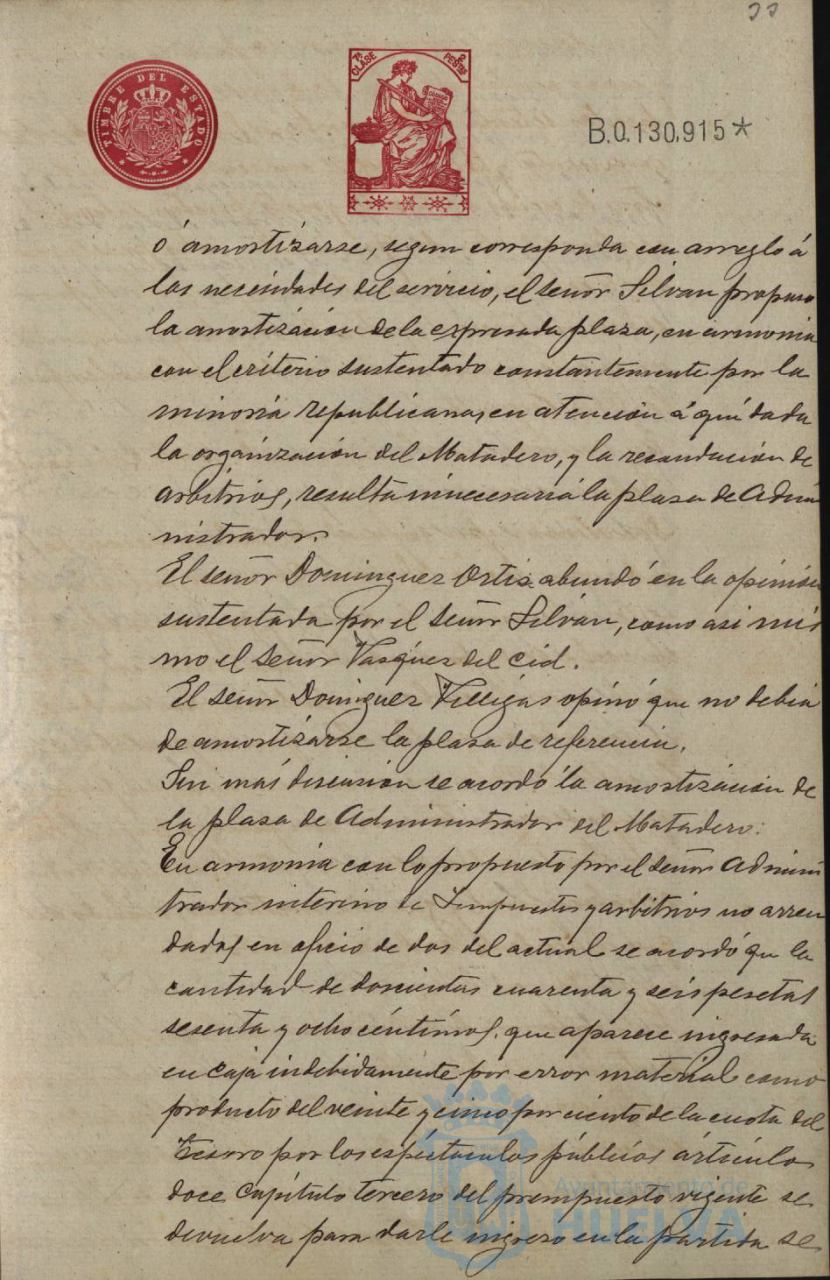 33
TIMBRE DEL ESTADO
7ª CLASE 2 PESTAS
B.0.130.915*
ó amortizarse, segun corresponda con arreglo á
las necesidades del servicio, el señor Silvan propuso
la amortización de la expresada plaza, en armonia
con el criterio sustentado constantemente por la
minoria republicana, en atención á qué dada
la organización del Matadero, y la recaudación de
arbitrios, resulta innecesaria la plaza de Admi
nistrador.
El señor Dominguez Ortiz abundó en la opinión
sustentada por el señor Silván, como asi mis
mo el señor Vazquez del Cid.
El señor Dominguez Villegas opinó que no debia
de amortizarse la plaza de referencia.
Sin más discusion se acordó la amortización de
la plaza de Administrador del Matadero.
En armonia con lo propuesto por el señor Adminis
trador interino de Impuestos y arbitrios no arren
dados en oficio de dos del actual se acordó que la
cantidad de doscientas cuarenta y seis pesetas
sesenta y ocho céntimos, que aparece ingresada
en caja indebidamente por error material como
producto del veinte y cinco por ciento de la cuota del
Tesoro por los espectaculos públicos articulo
doce capitulo tercero del presupuesto vigente se
devuelva para darle ingreso en la partida se
Ayuntamiento de
HUELVA